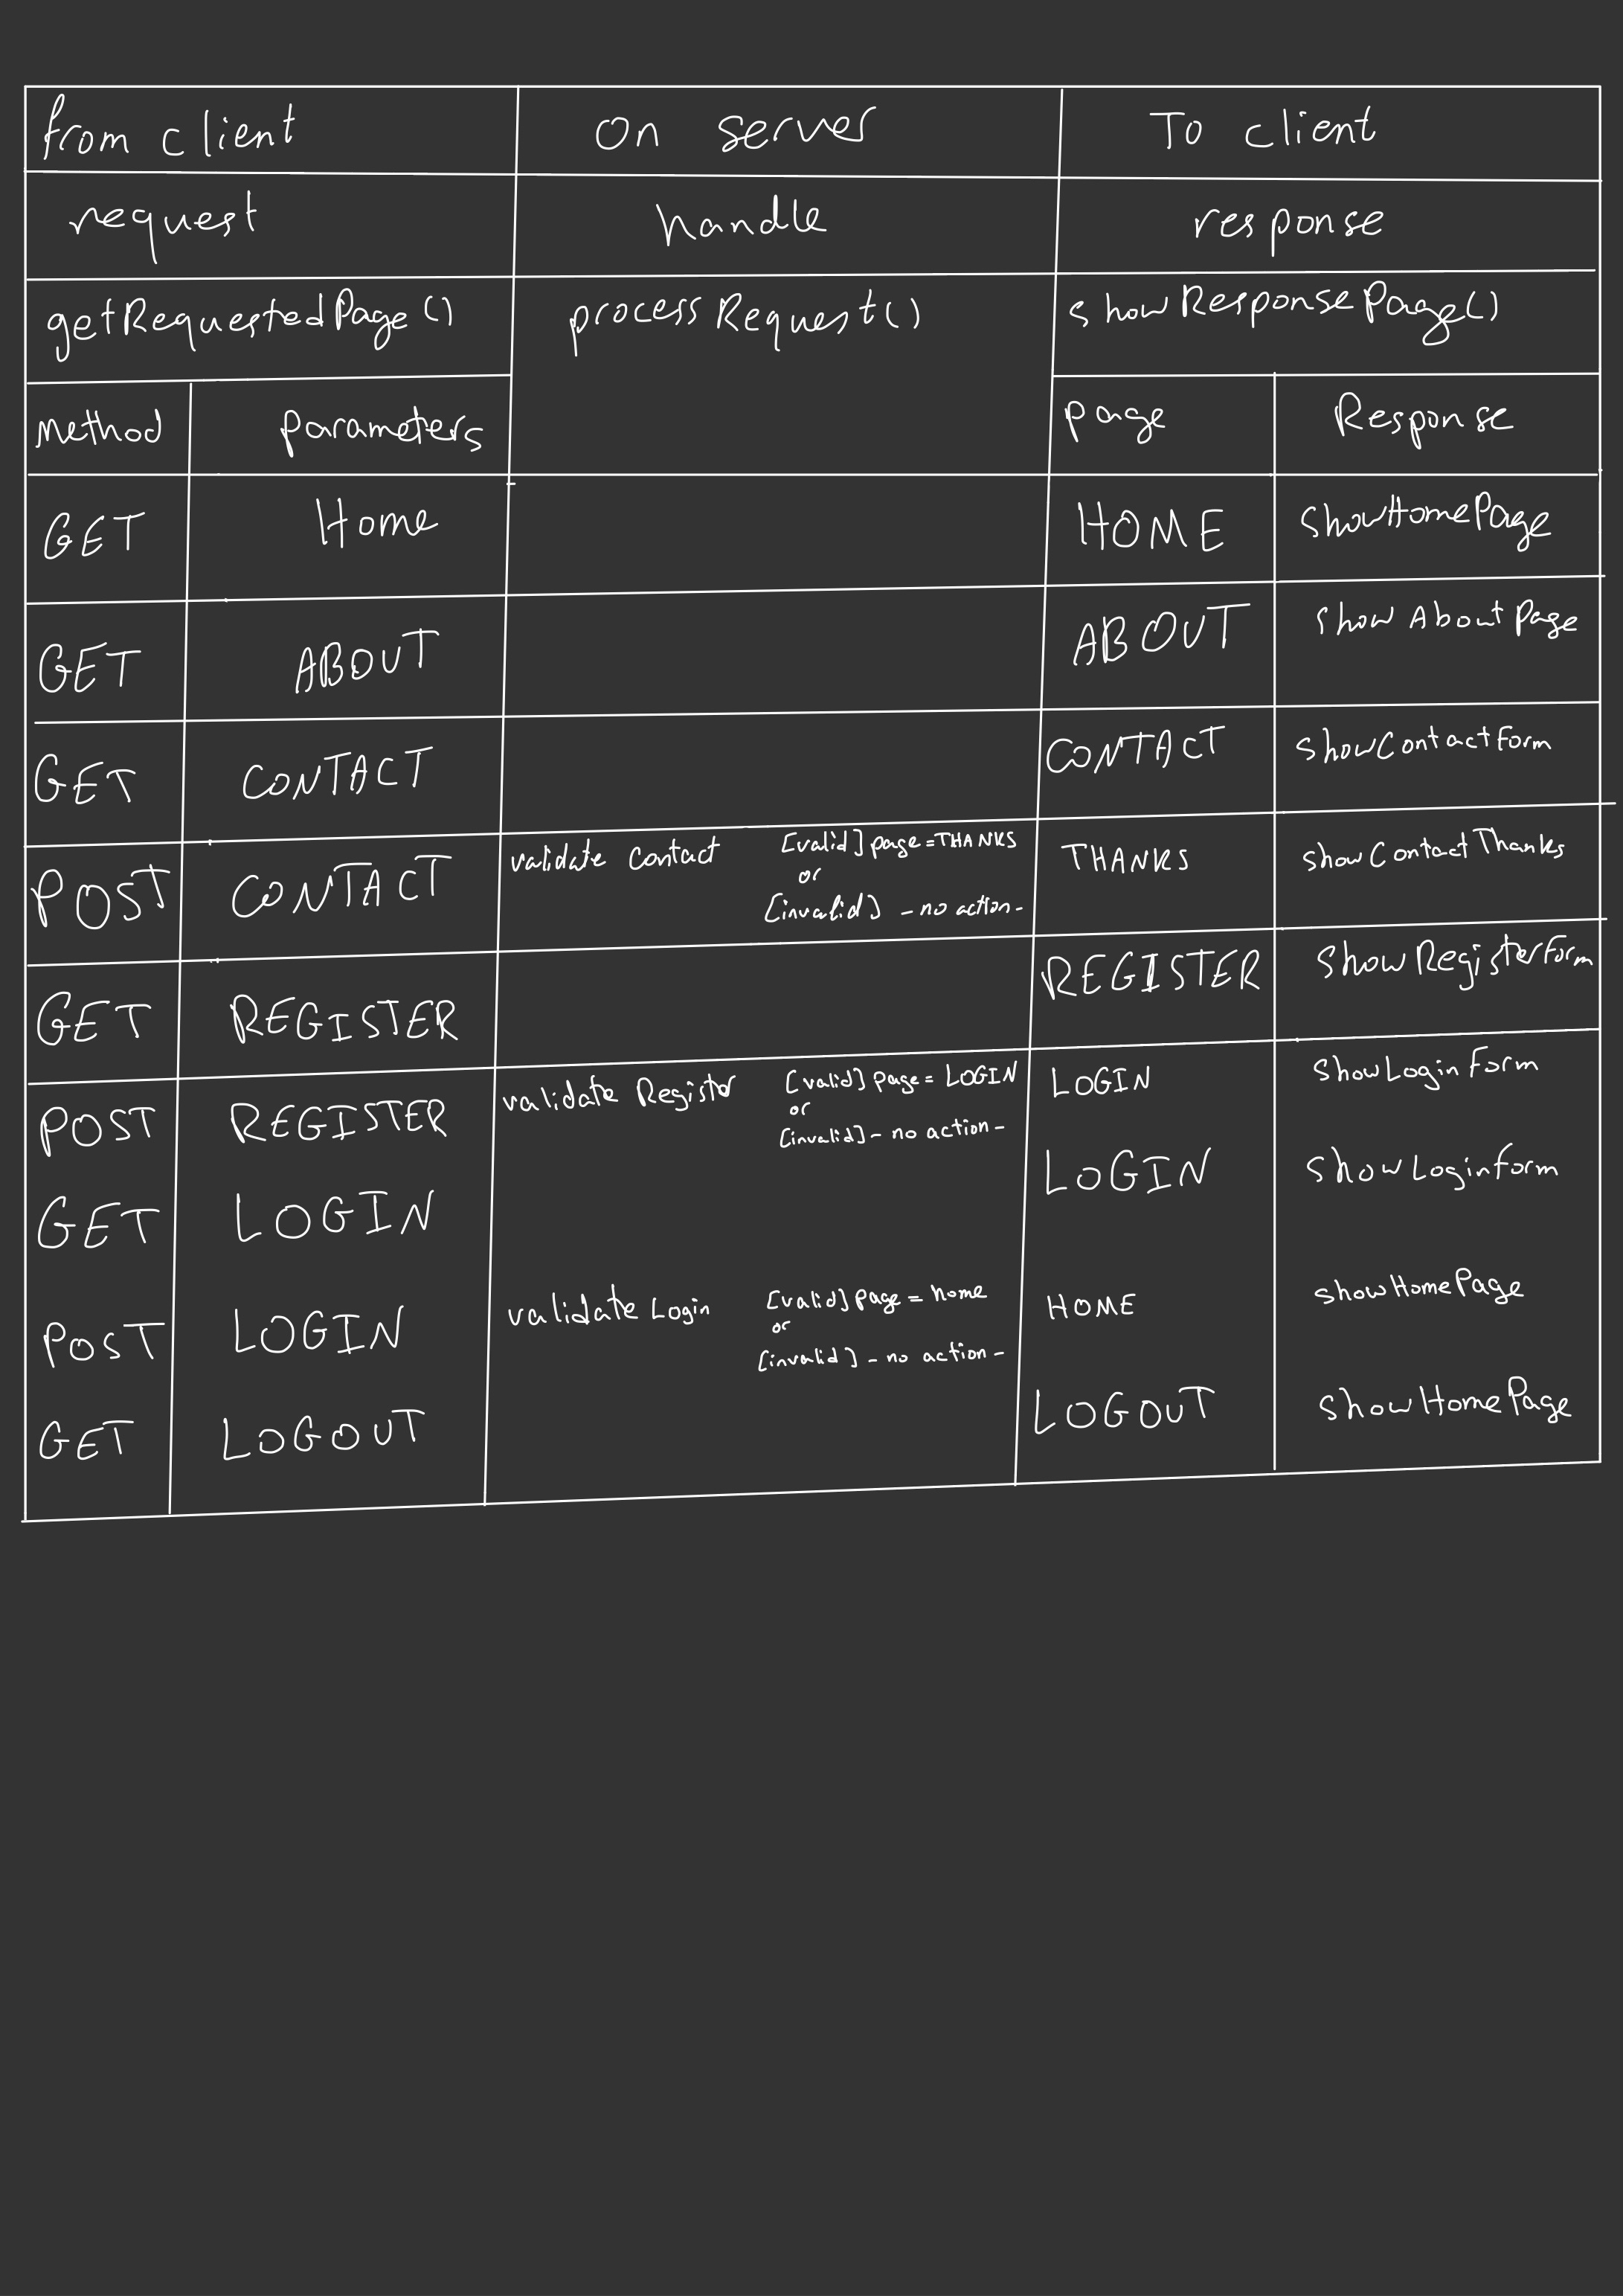 from client on server To client
request handle response
getRequestedPage() processRequest() showResponsePage()
Method parameters page Response
GET Home HOME showHomePage
GET ABOUT ABOUT show AboutPage
GET CONTACT CONTACT showContactForm
POST CONTACT validate contact [valid] page=THANKS THANKS showContactThanks
or
[invalid] - no action -
GET REGISTER REGISTER showRegisterForm
POST REGISTER validate Register [valid] page= LOGIN LOGIN showLoginForm
or
[invalid] - no action -
GET LOGIN LOGIN showLoginform
POST LOGIN validate Login [valid] page = home HOME showHomePage
or
[invalid] - no action -
GET LOGOUT LOGOUT showHomePage